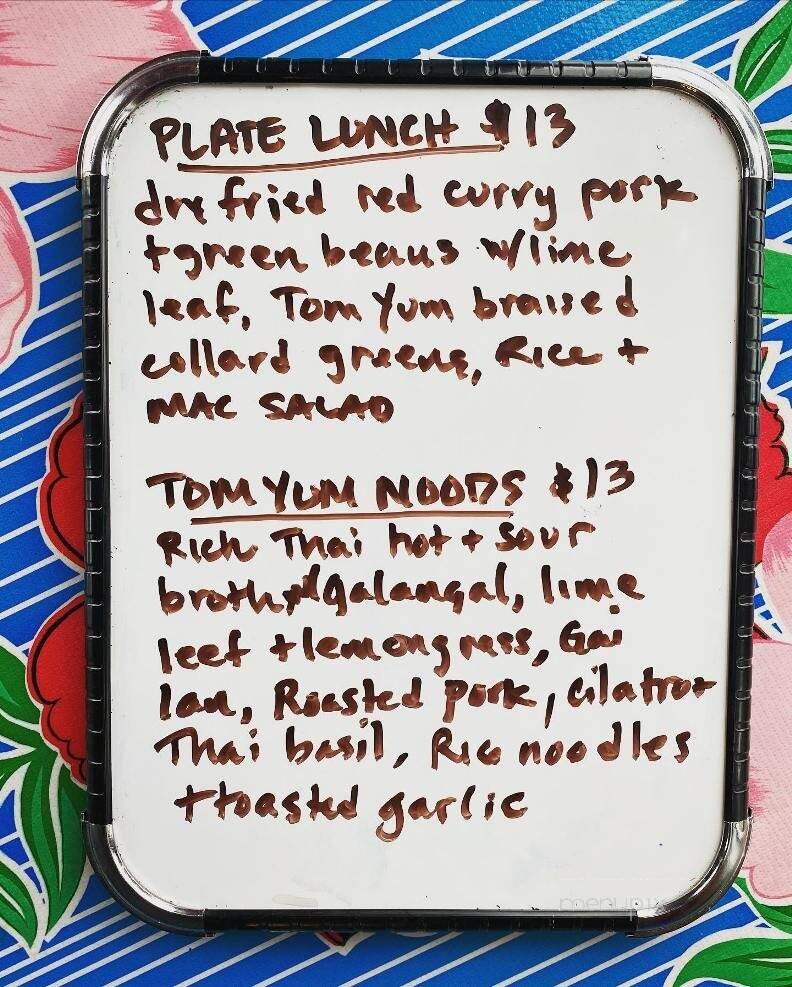 PLATE LUNCH $13
dry fried red curry pork
+green beans w/lime
leaf, Tom Yum braised
collard greens, Rice +
MAC SALAD
TOM YUM NOODS $13
Rich Thai hot + sour
broth, w/galangal, lime
leef + lemongrass, Gai
lan, Roasted pork, cilatro+
Thai basil, Rice noodles
+toasted garlic
menupix